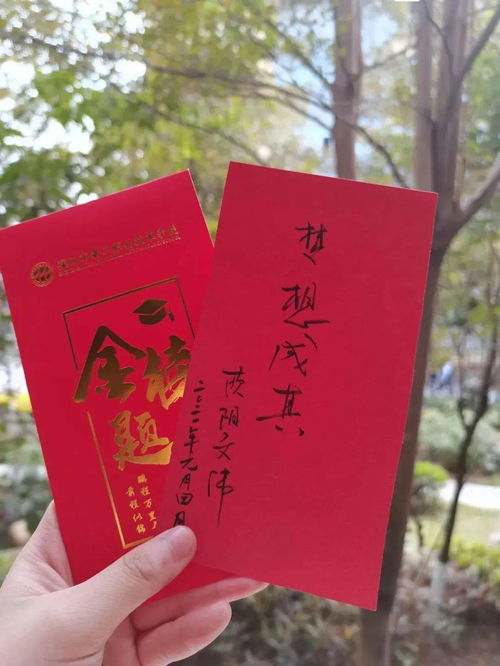 金榜
题
鹏程万里
前程似锦
梦想成真
欧阳文伟
二〇二二年元月四日